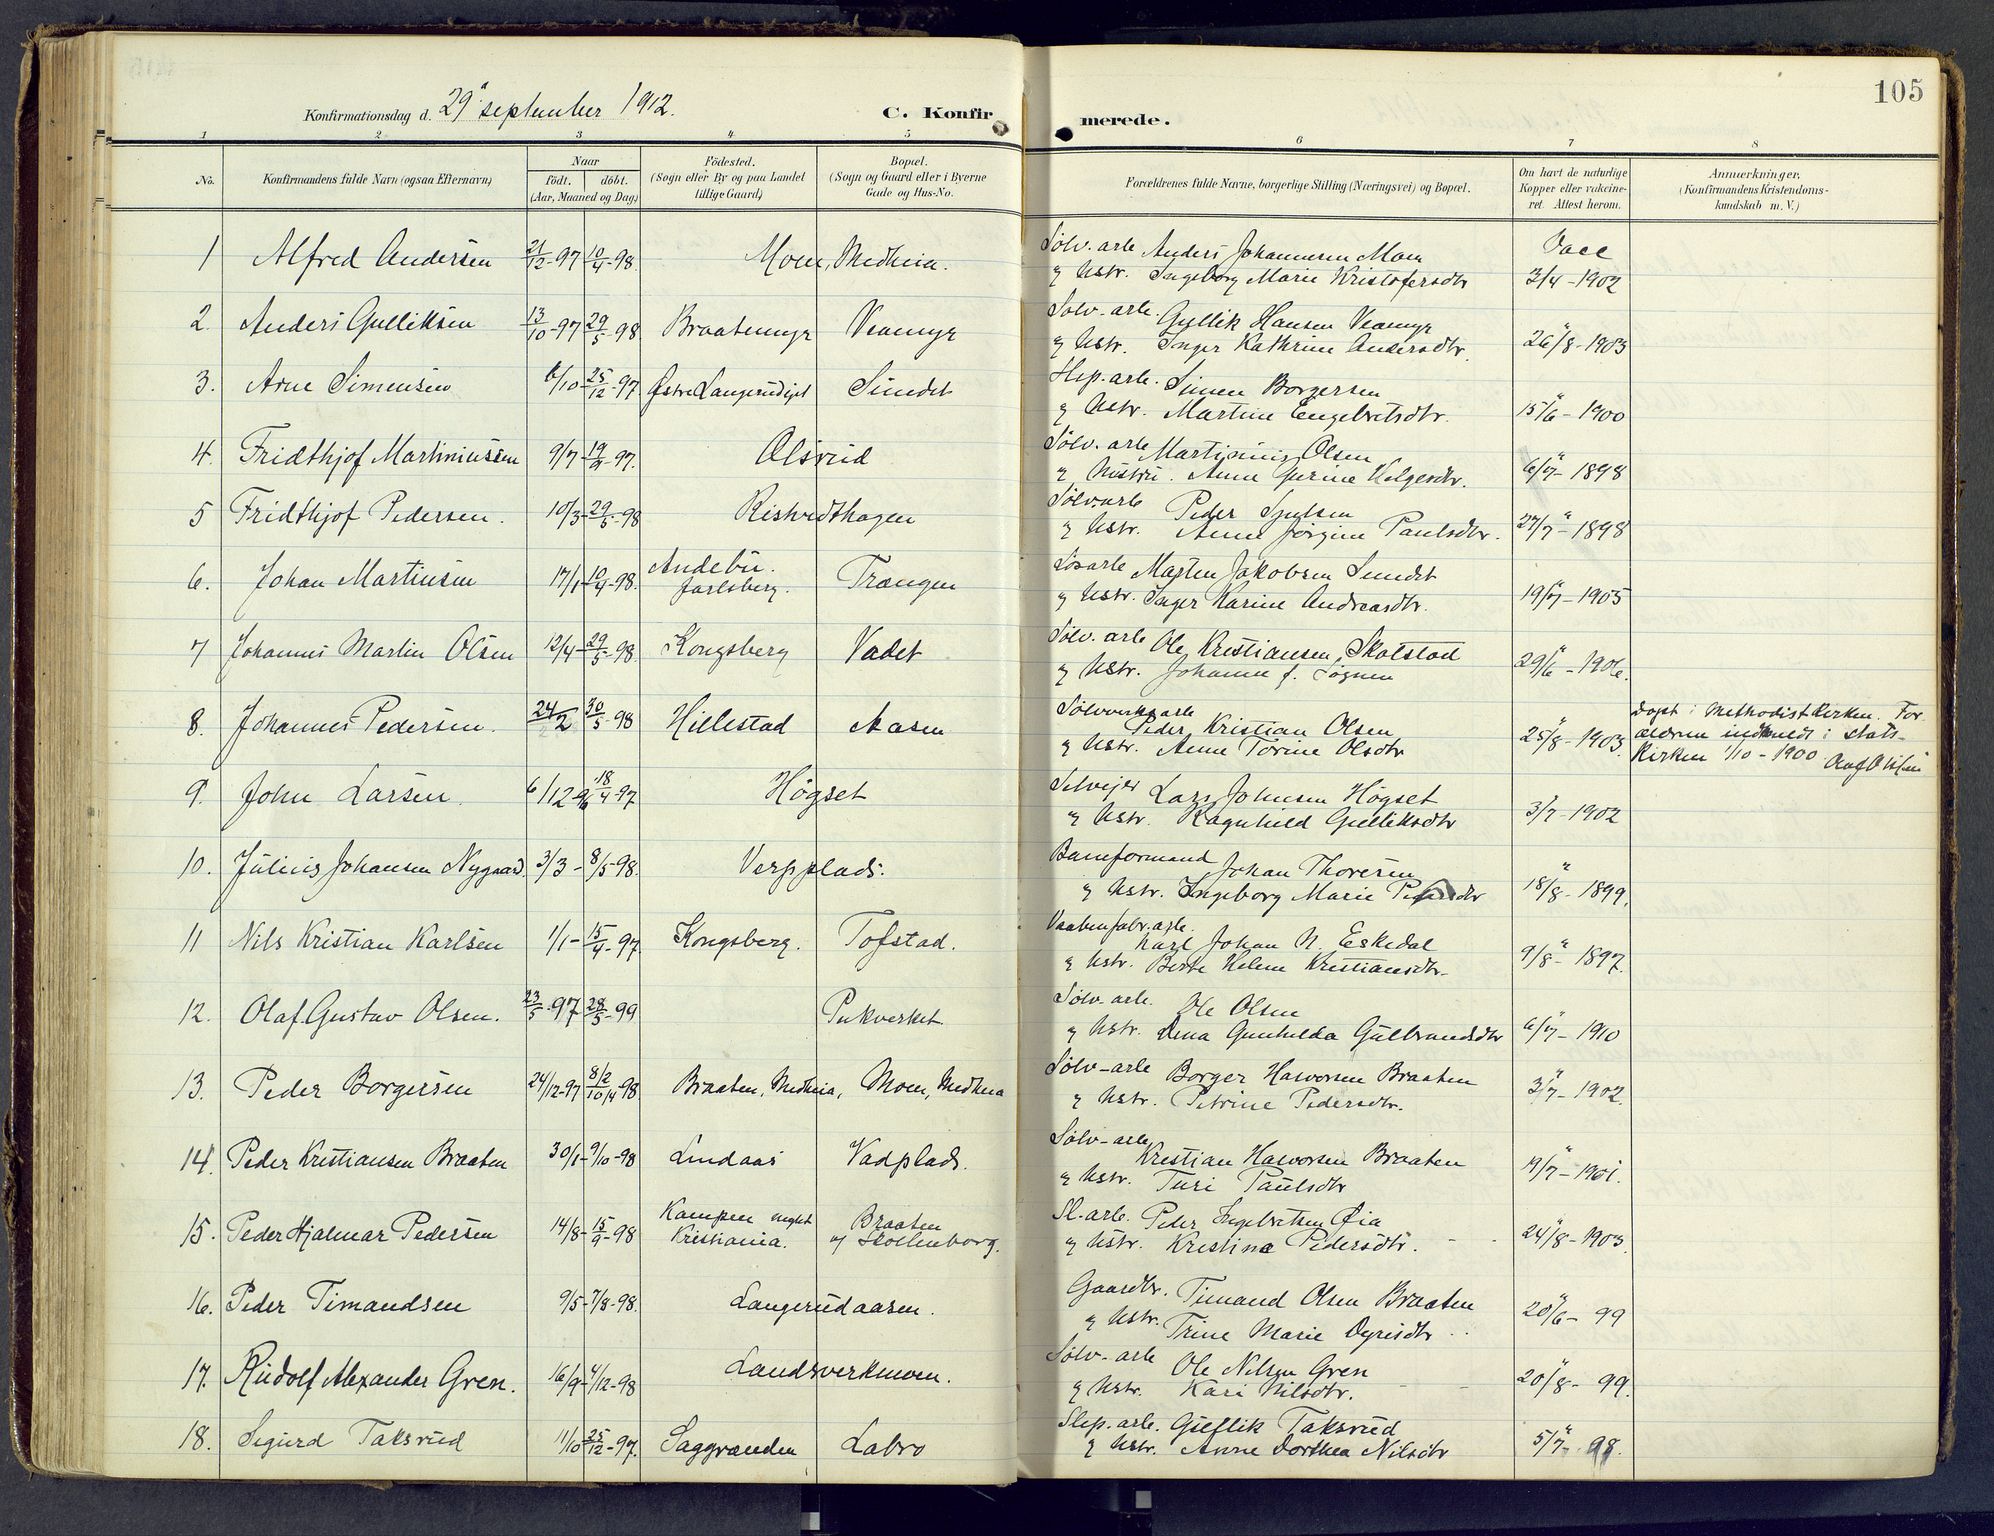 105
Konfirmationsdag d. 29 september 1912.
C. Konfirmerede.
1 2 3 4 5 6 7 8
No.
Konfirmandens fulde Navn (ogsaa Efternavn)
Naar
födt. döbt.
(Aar, Maaned og Dag)
Födested.
(Sogn eller By og paa Landet
tillige Gaard)
Bopæl.
(Sogn og Gaard eller i Byerne
Gade og Hus-No.
Forældrenes fulde Navne, borgerlige Stilling (Næringsvei) og Bopæl.
Om havt de naturlige
Kopper eller vakcine-
ret. Attest herom.
Anmærkninger.
(Konfirmandens Kristendoms-
kundskab m. V.)
1 Alfred Andersen 21/12-97 10/4-98. Moen, Medheia. Sølv. arb. Anders Johannesen Moen Vacc
& Hstr. Ingeborg Marie Kristofersdtr 3/4-1902
2. Anders Gulliksen 13/10-97 29/5-98 Braatenmyr Veamyr Sølv. arb. Gullik Hansen Veamyr
& Hstr. Inger Kathrine Andersdtr. 26/8-1903
3. Arne Simensen 6/10- 25/12-97 Østre Langerudejet Sundet Slip. arb. Simen Borgersen
& Hstr. Martine Engebretsdtr. 15/6-1900
4. Fridthjof Martiniussen 9/7- 19/9-97. Olsrud Sølv. arb. Martinius Olsen
& Hustru. Anne Gurine Helgesdtr. 6/7-1898
5 Fridthjof Pedersen. 10/3- 29/5-98 Kistvedthagen Sølv.arb Peder
& Hstr. Anne Jørgine Paulsdtr. 27/7-1898
6. Johan Martinsen 17/1- 10/4-98. Andebu. Jarlsberg. Trangen Løsarb Martin Jakobsen Sundet
& Hstr. Inger Karine Andreasdtr. 19/7-1905
7 Johannes Martin Olsen 12/4- 29/5-98. Kongsberg Vadet Sølv. arb Ole Kristiansen Skolstad
& Hstr. Johanne f. 29/6-1906.
8. Johannes Pedersen. 24/2 30/5-98 Hillestad Aasen Sølvverksarb Peder Kristian Olsen
& Hstr. Anne Torine Olsdtr 25/8-1903
Døpt i Methodistkirken. For
ældrene indmeldt i Stats-
kirken 1/10-1900
9. John Larsen. 6/12-96 18/4-97 Høgset Selveier Lars Johnsen Høgset
& Hstr. Ragnhild Gulliksdtr 3/7-1902
10. Julius Johansen Nygaard. 3/3- 8/5-98. Verpplads. Baneformand Johan Thoresen
& Hstr. Ingeborg Marie 18/8-1899.
11 Nils Kristian Karlsen 1/1- 15/4-97 Kongsberg. Tofstad. Vaabenfabr.arb. Karl Johan N. Eskedal
& Hstr. Berte Helene Kristiansdtr. 9/8-1897.
12. Olaf Gustav Olsen. 23/5-97 28/5-99 Pukverket Sølv-arb. Ole Olsen
& Hstr. Lina Gunhilda Gulbrandsdtr 6/7-1910
13. Peder Borgersen 24/12-97 8/2 10/4-98 Braaten, Medheia, Moen, Medheia Sølv-arb Borger Halvorsen Braaten
& Hstr. Petrine Pedersdtr. 3/7-1902.
14. Peder Kristiansen Braaten 30/1- 9/10-98 Lindaas Vadplads. Sølv-arb Kristian Halvorsen Braaten
& Hstr. Turi Paulsdtr 19/7-1901.
15. Peder Hjalmar Pedersen 14/8- 15/9-98 Kampen sogn Kristiania. Braaten v/ Skollenborg. Sl. arb. Peder Ingebretsen Øia
& Hstr. Kristina Pedersdtr. 24/8-1903.
16. Peder Timandsen 9/5- 7/8-98. Langerudaasen. Gaardbr. Timand Olsen Braaten
& Hstr. Trine Marie Dyresdtr 20/6-99
17. Rudolf Alexander Gren. 16/9- 4/12-98 Landsverkmoen. Sølv-arb Ole Nilsen Gren
& Hstr. Kari Nilsdtr. 20/8-99.
18. Sigurd Taksrud 11/10 25/12-97. Saggranden Labro Slip. arb. Gullik Taksrud
& Hstr. Anne Dorthea Nilsdtr 5/7-98.